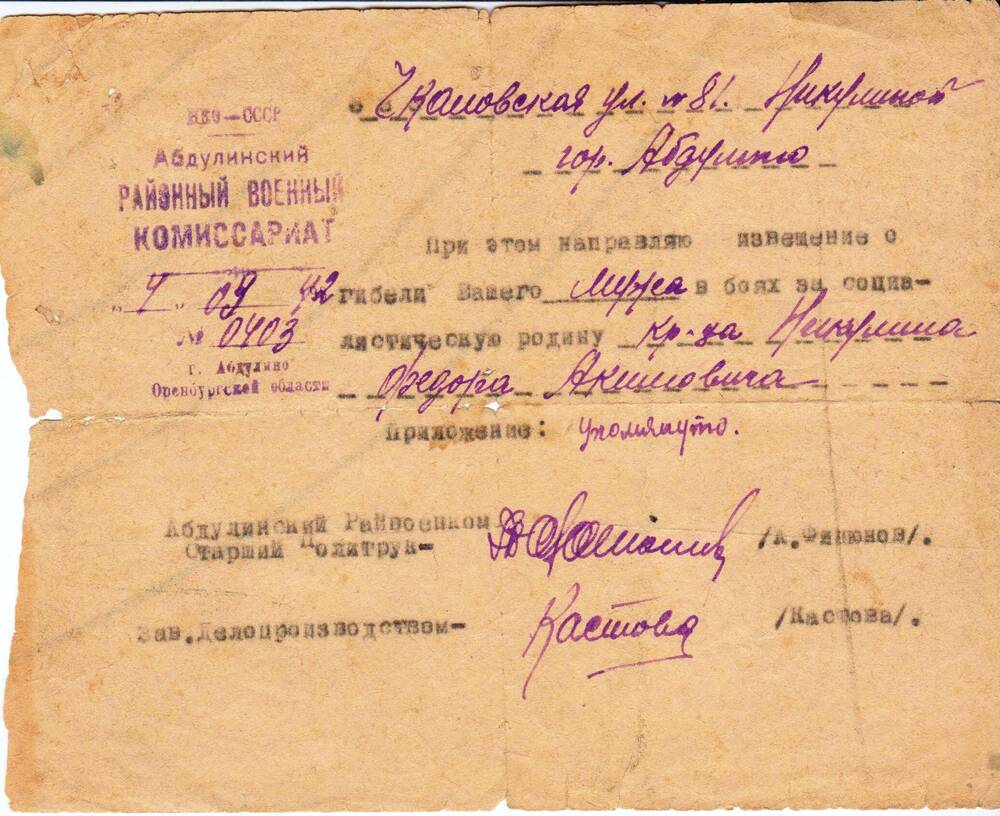 Чкаловская ул. № 81. Никулиной
гор. Абдулино
НКО—СССР
Абдулинский
РАЙОННЫЙ ВОЕННЫЙ
КОМИССАРИАТ
"4" 09 42
№ 0403
г. Абдулино
Оренбургской области
При этом направляю извещение о
гибели Вашего мужа в боях за социа-
листическую родину кр-ца Никулина
Федора Акимовича
Приложение: упомянуто.
Абдулинский Райвоенком
Старший Политрук- /А.Филюнов/.
Зав.Делопроизводством- Кастова /Кастова/.